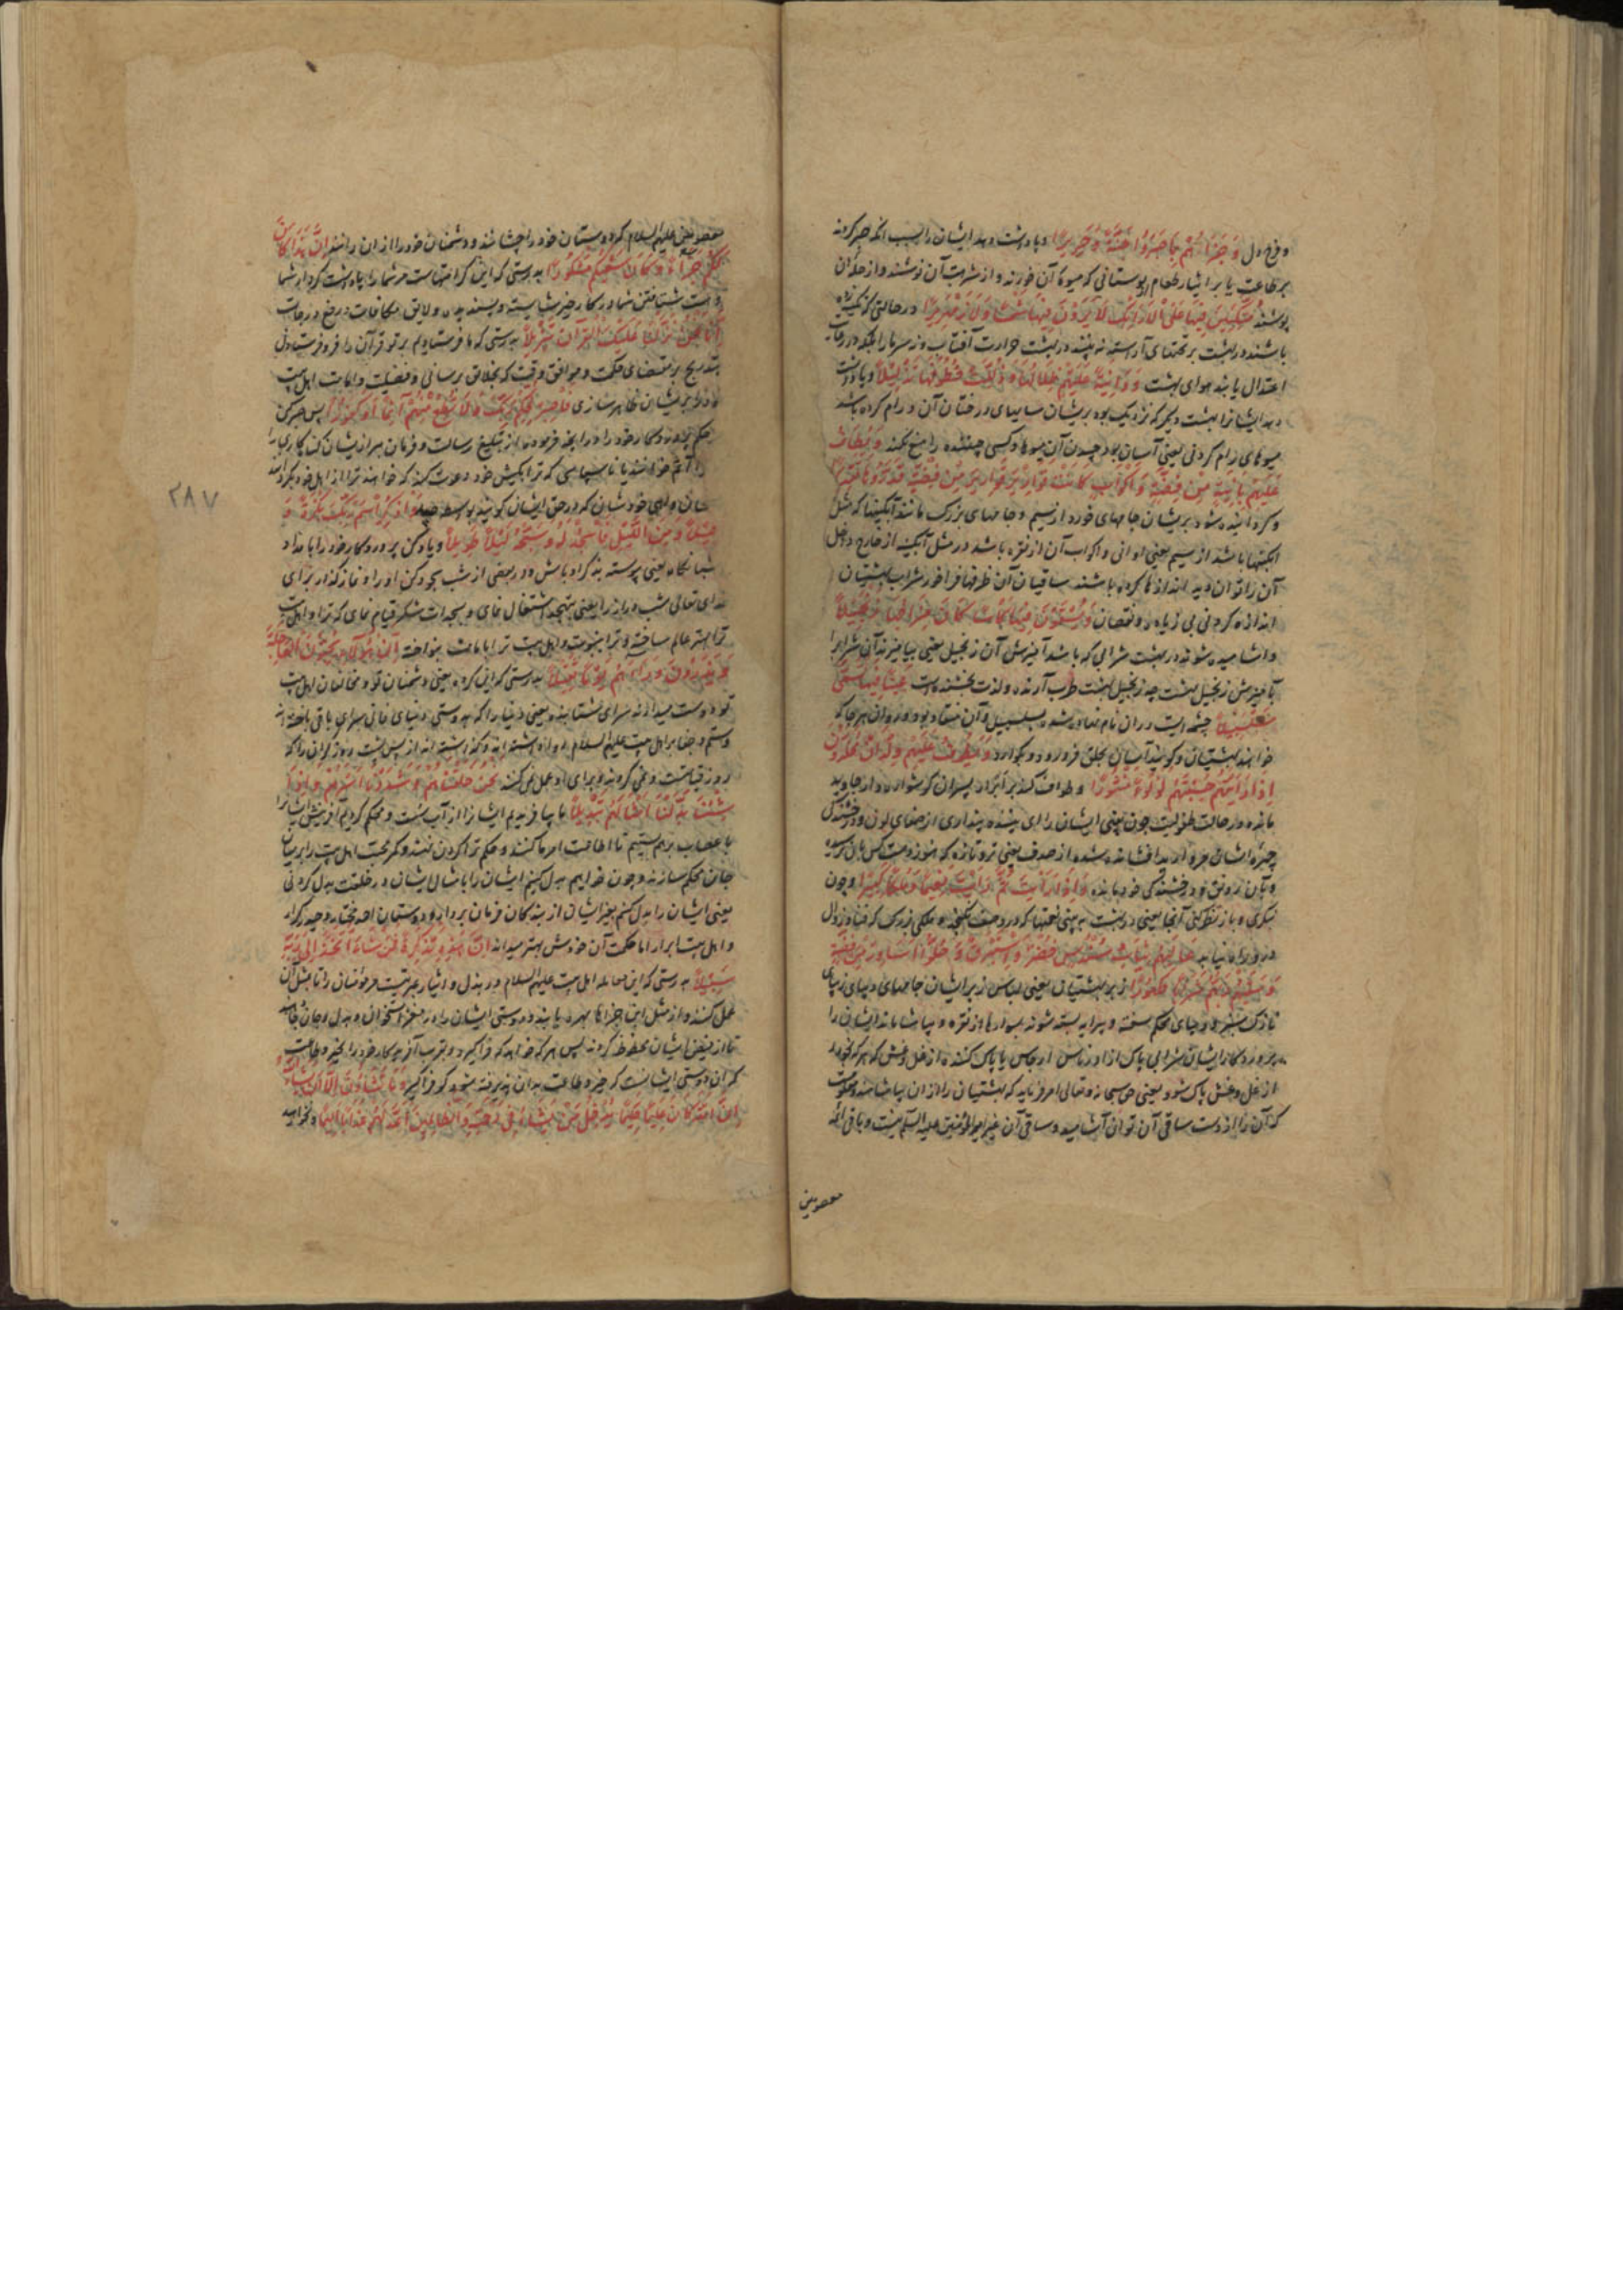 و فرح دل وَجَزَاهُمْ بِمَا صَبَرُوا جَنَّةً وَحَرِيرًا و پاداشت دهد ایشان را بسبب آنکه صبر کردند
بر طاعت یا بر ایثار طعام بوستانی که میوهٔ آن خورند و از شربت آن نوشند و از حلهٔ آن
پوشند مُتَّكِئِينَ فِيهَا عَلَى الْأَرَائِكِ لَا يَرَوْنَ فِيهَا شَمْسًا وَلَا زَمْهَرِيرًا در حالتی که تکیه زده
باشند در بهشت بر تختهای آراسته نه بینند در بهشت حرارت آفتاب و نه سرما را بلکه در
اعتدال یابند هوای بهشت وَدَانِيَةً عَلَيْهِمْ ظِلَالُهَا وَذُلِّلَتْ قُطُوفُهَا تَذْلِيلًا و پاداشت
دهد ایشانرا بهشت دیگر که نزدیک بود بریشان سایهای درختان آن و رام کرده باشد
میوهای رام کردنی یعنی آسان بود چیدن آن میوها و کسی چیننده را منع نکند وَيُطَافُ
عَلَيْهِمْ بِآنِيَةٍ مِنْ فِضَّةٍ وَأَكْوَابٍ كَانَتْ قَوَارِيرَ قَوَارِيرَ مِنْ فِضَّةٍ قَدَّرُوهَا تَقْدِيرًا
و گردانیده شود بریشان جامهای خورد از سیم و جامهای بزرگ مانند آبگینها که مثل
آبگینها باشد از سیم یعنی اوانی و اکواب آن از نقره باشد در مثل آبگینه از خارج داخل
آن را توان دید اندازها کرده باشند ساقیان آن ظرفها فراخور شراب بهشتیان
اندازه کردنی بی زیاده و نقصان وَيُسْقَوْنَ فِيهَا كَأْسًا كَانَ مِزَاجُهَا زَنْجَبِيلًا
و اشامیده شوند در بهشت شرابی که باشد آمیزش آن زنجبیل یعنی بیامیزند آن شراب را
بآمیزش زنجبیل بهشت چه زنجبیل بهشت طرب آرنده و لذت بخشنده است عَيْنًا فِيهَا تُسَمَّى
سَلْسَبِيلًا چشمه ایست در آن نام نهاده شده بسلسبیل و آن منقاد بود و روان هر جا که
خواهند بهشتیان و گویند آسان بحلق فرو رود و گوارد وَيَطُوفُ عَلَيْهِمْ وِلْدَانٌ مُخَلَّدُونَ
إِذَا رَأَيْتَهُمْ حَسِبْتَهُمْ لُؤْلُؤًا مَنْثُورًا و طواف کند بر ابرار پسران گوشواره دار جاوید
مانده در حالت طفولیت چون بینی ایشان را ای بیننده پنداری از صفای لون و درخشندگی
چهرهٔ ایشان مروارید افشانده شده از صدف یعنی تر و تازه که هنوز دست کس بآن نرسیده
و بآن رونق و درخشندگی خود مانده وَإِذَا رَأَيْتَ ثَمَّ رَأَيْتَ نَعِيمًا وَمُلْكًا كَبِيرًا و چون
نگری و باز نظر کنی آنجا یعنی در بهشت به بینی نعمتها که در وصف نگنجد و ملکی بزرگ که فنا و زوال
در او راه نیابد عَالِيَهُمْ ثِيَابُ سُنْدُسٍ خُضْرٌ وَإِسْتَبْرَقٌ وَحُلُّوا أَسَاوِرَ مِنْ فِضَّةٍ
وَسَقَاهُمْ رَبُّهُمْ شَرَابًا طَهُورًا از بر بهشتیان یعنی لباس زبر ایشان جامهای دیبای زیبای
نازک سبز و دیبای محکم سفته و پیرایه بسته شوند بسوارها از نقره و بیاشاماند ایشان را
پروردگار ایشان شرابی پاک از ادناس ارجاس یا پاک کننده از غل و غش که هر که بخورد
از غل و غش پاک شود یعنی حق سبحانه و تعالی امر فرماید که بهشتیان را از آن بیاشامند
که آن را از دست ساقی آن توان آشامید و ساقی آن غیر امیر المؤمنین علیه السلام نیست و باقی ائمه
معصومین
معصومین علیهم السلام که دوستان خود را چشانند و دشمنان خود را از آن رانند إِنَّ هَذَا كَانَ
لَكُمْ جَزَاءً وَكَانَ سَعْيُكُمْ مَشْكُورًا بدرستی که این کرامتهاست مر شما را پاداشت کردار شما
و هست شتافتن شما در کار خیر شایسته و پسندیده و لایق مکافات برفع درجات
إِنَّا نَحْنُ نَزَّلْنَا عَلَيْكَ الْقُرْآنَ تَنْزِيلًا بدرستی که ما فرستادیم بر تو قرآن را فرو فرستادن
بتدریج بر مقتضای حکمت و موافق وقت که بخلایق برسانی و فضیلت و امامت اهل بیت
بریشان ظاهر سازی فَاصْبِرْ لِحُكْمِ رَبِّكَ وَلَا تُطِعْ مِنْهُمْ آثِمًا أَوْ كَفُورًا پس صبر کن
بحکم پروردگار خود را در آنچه فرموده از تبلیغ رسالت و فرمان مبر از یشان گناه کاری را
که ترا بکیش خود دعوت کند که خواهند ترا از اهل خود بگردانند
که در حق ایشان گویند بواسطه حسد وَاذْكُرِ اسْمَ رَبِّكَ بُكْرَةً وَ
أَصِيلًا وَمِنَ اللَّيْلِ فَاسْجُدْ لَهُ وَسَبِّحْهُ لَيْلًا طَوِيلًا و یاد کن پروردگار خود را بامداد
شبانگاه یعنی پیوسته بذکر او باش و در بعضی از شب سجود کن او را و نماز گذار برای
خدای تعالی شب دراز را یعنی بتهجد اشتغال نمای و بسجدات شکر قیام نمای که ترا و اهل بیت
ترا بهتر عالم ساخته و ترا بنبوت و اهل بیت ترا بامامت بنواخته إِنَّ هَؤُلَاءِ يُحِبُّونَ الْعَاجِلَةَ
وَيَذَرُونَ وَرَاءَهُمْ يَوْمًا ثَقِيلًا بدرستی که این گروه یعنی دشمنان تو و مخالفان اهل بیت
تو دوست میدارند سرای شتابنده یعنی دنیا را که بدوستی دنیای فانی سرای باقی باخته اند
و ستم و جفا بر اهل بیت علیهم السلام روا داشته اند و گذاشته اند از پس پشت روز گران را که
روز قیامتست و نمی گروند و برای او عمل نمی کنند نَحْنُ خَلَقْنَاهُمْ وَشَدَدْنَا أَسْرَهُمْ وَإِذَا
شِئْنَا بَدَّلْنَا أَمْثَالَهُمْ تَبْدِيلًا ما بیافریدیم ایشانرا از آب سست و محکم کردیم آفرینش ایشانرا
با عصاب بر هم بستیم تا اطاعت امر ما کنند و حکم ترا گردن نهند و کمر محبت اهل بیت را بر میان
جان محکم سازند و چون خواهیم بدل کنیم ایشان را بامثال ایشان در خلقت بدل کردنی
یعنی ایشان را بدل کنیم بغیر ایشان از بندگان فرمان بردار و دوستان احمد مختار و حیدر کرار
و اهل بیت ابرار اما حکمت آن خودش بهتر میداند إِنَّ هَذِهِ تَذْكِرَةٌ فَمَنْ شَاءَ اتَّخَذَ إِلَى رَبِّهِ
سَبِيلًا بدرستی که این معامله اهل بیت علیهم السلام در بذل و ایثار عبرتیست مر مؤمنان را تا بمثل آن
عمل کنند و از مثل این جزاها بهره یابند و دوستی ایشان را در مغز استخوان و بدل و جان
تا از فیض ایشان محظوظ گردند پس هر که خواهد که فراگیرد و بقرب آفریدگار خود را بخیر و طاعت
که آن دوستی ایشانست که خیر و طاعت بدان پذیرفته شود گو فراگیر وَمَا تَشَاءُونَ إِلَّا أَنْ يَشَاءَ اللَّهُ
إِنَّ اللَّهَ كَانَ عَلِيمًا حَكِيمًا يُدْخِلُ مَنْ يَشَاءُ فِي رَحْمَتِهِ وَالظَّالِمِينَ أَعَدَّ لَهُمْ عَذَابًا أَلِيمًا و نخواهید
۲۸۷